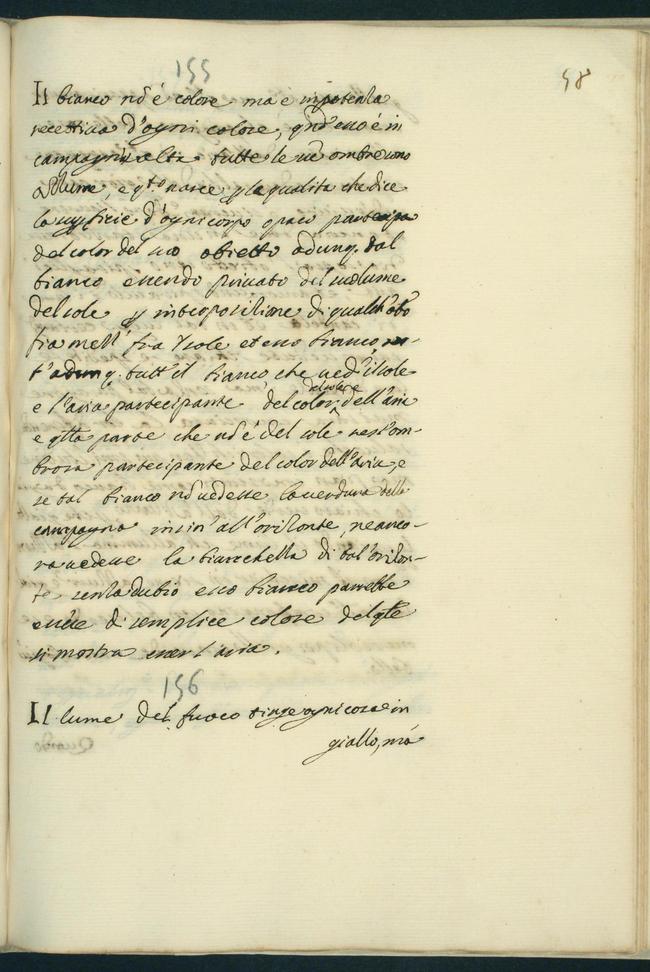 155
58
Il bianco nō é colore ma e inpotenza
recettiva d'ogni colore, qñd'esso é in
campagna alta tutte le ue ombre sono
e qto nasce la qualita che dice
la superficie d'ogni corpo opaco partecipa
del color del suo obietto adunq. tal
bianco essendo privato del lume
del sole p interposizione di qualch'obo
fra mess' fra 'l sole et esso bianco,
t'adunq. tutt'il bianco, che ved'il sole
e l'aria partecipante del color del sole dell'aria
e qlla parte che nō é del sole rest'om-
brosa partecipante del color dell'aria, e
se tal bianco nō vedesse la verdura della
campagna insin'all'orizonte, ne anco-
ra vedesse la bianchezza di tal'orizon-
te senza dubio esso bianco parrebbe
essere di semplice colore del qle
si mostra esser l'aria.
156
Il lume del fuoco tinge ogni cosa in
giallo, mà